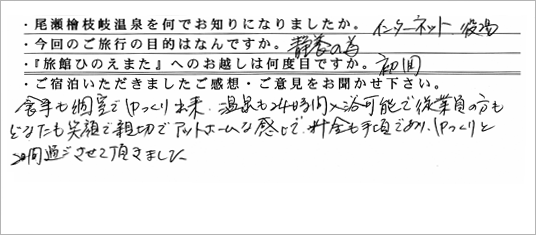 ・尾瀬檜枝岐温泉を何でお知りになりましたか。 インターネット 役場
・今回のご旅行の目的はなんですか。 静養の為
・『旅館ひのえまた』へのお越しは何度目ですか。 初回
・ご宿泊いただきましたご感想・ご意見をお聞かせ下さい。
食事も個室でゆっくり出来、温泉も24時間入浴可能で従業員の方も
どなたも笑顔で親切でアットホームな感じで、料金も手頃であり、ゆっくりと
2日間過ごさせて頂きました